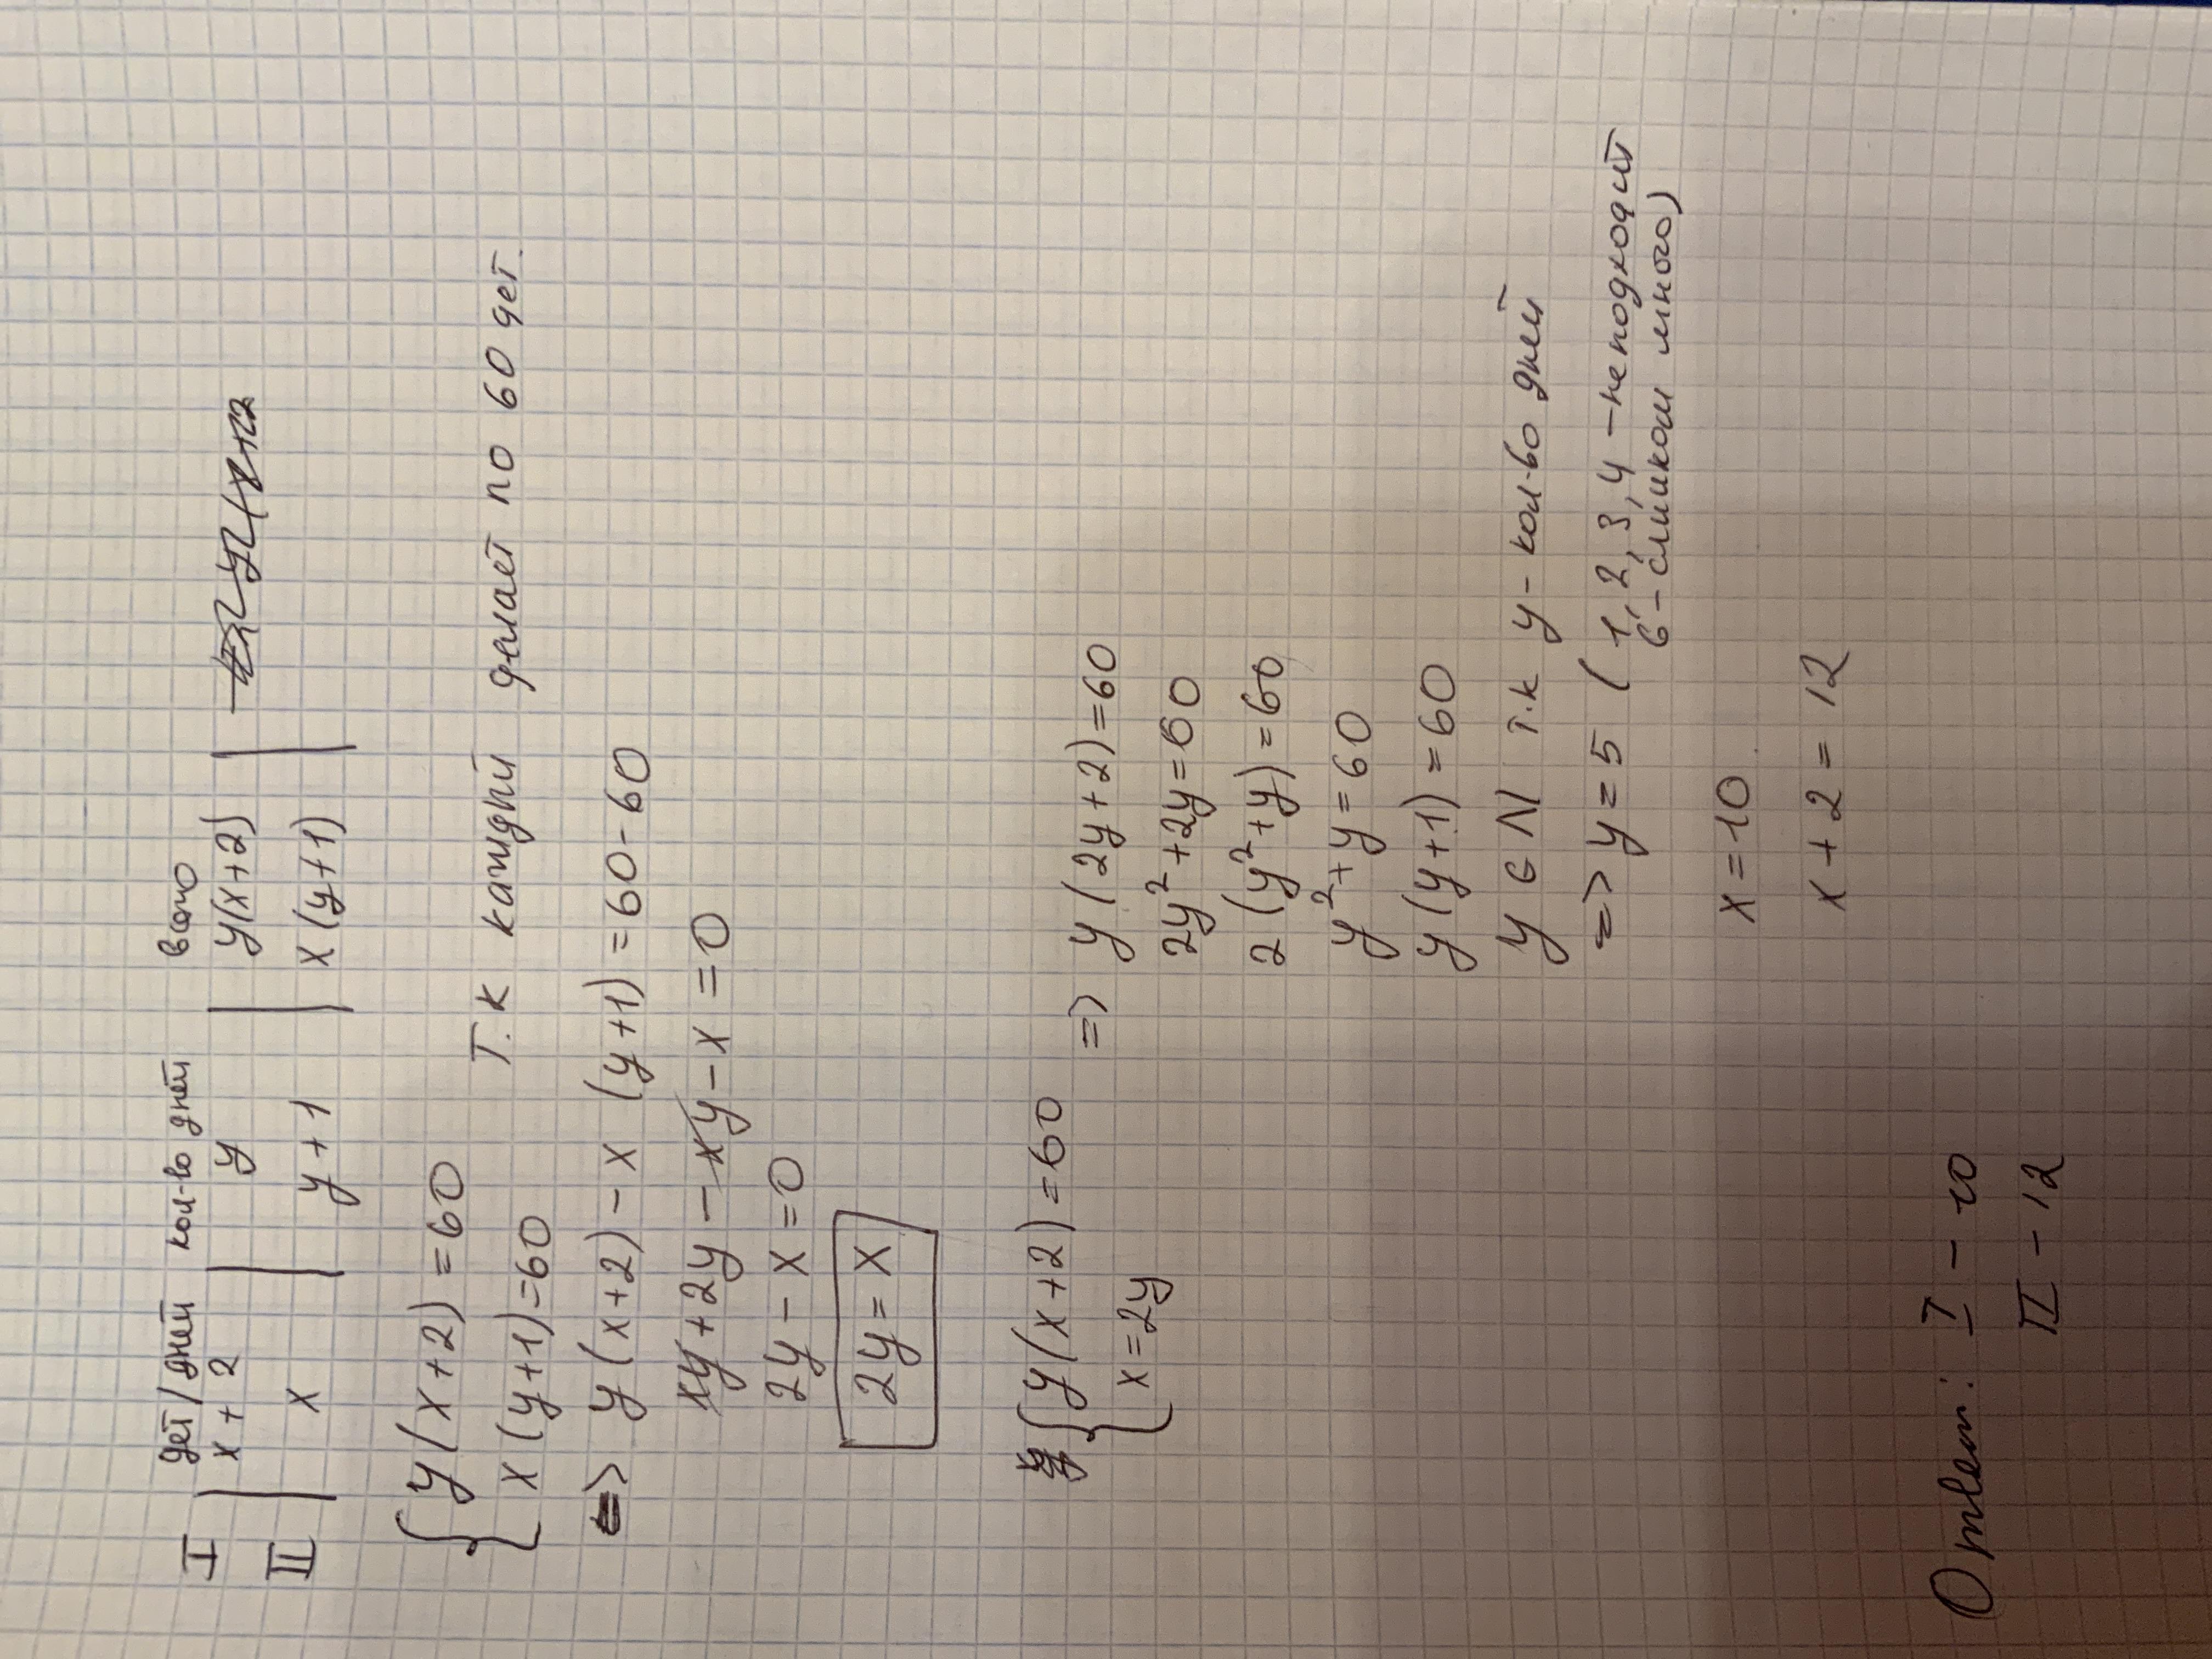 дет/дней кол-во дней всего
I | x + 2 | y | y(x+2) |
II | x | y + 1 | x (y+1) |
{ y(x+2) = 60
x (y+1)=60 Т.к каждый делает по 60 дет.
=> y (x+2) - x (y+1) = 60-60
xy + 2y - xy - x = 0
2y - x = 0
2y = x
{ y(x+2)=60 => y (2y+2)=60
x = 2y
2y²+2y=60
2 (y²+y)=60
y²+y=60
y(y+1)=60
y ∈ N т.к y - кол-во дней
=> y = 5 (1, 2, 3, 4 - не подходит
6 - слишком много)
x = 10
x + 2 = 12
Ответ: I - 10
II - 12